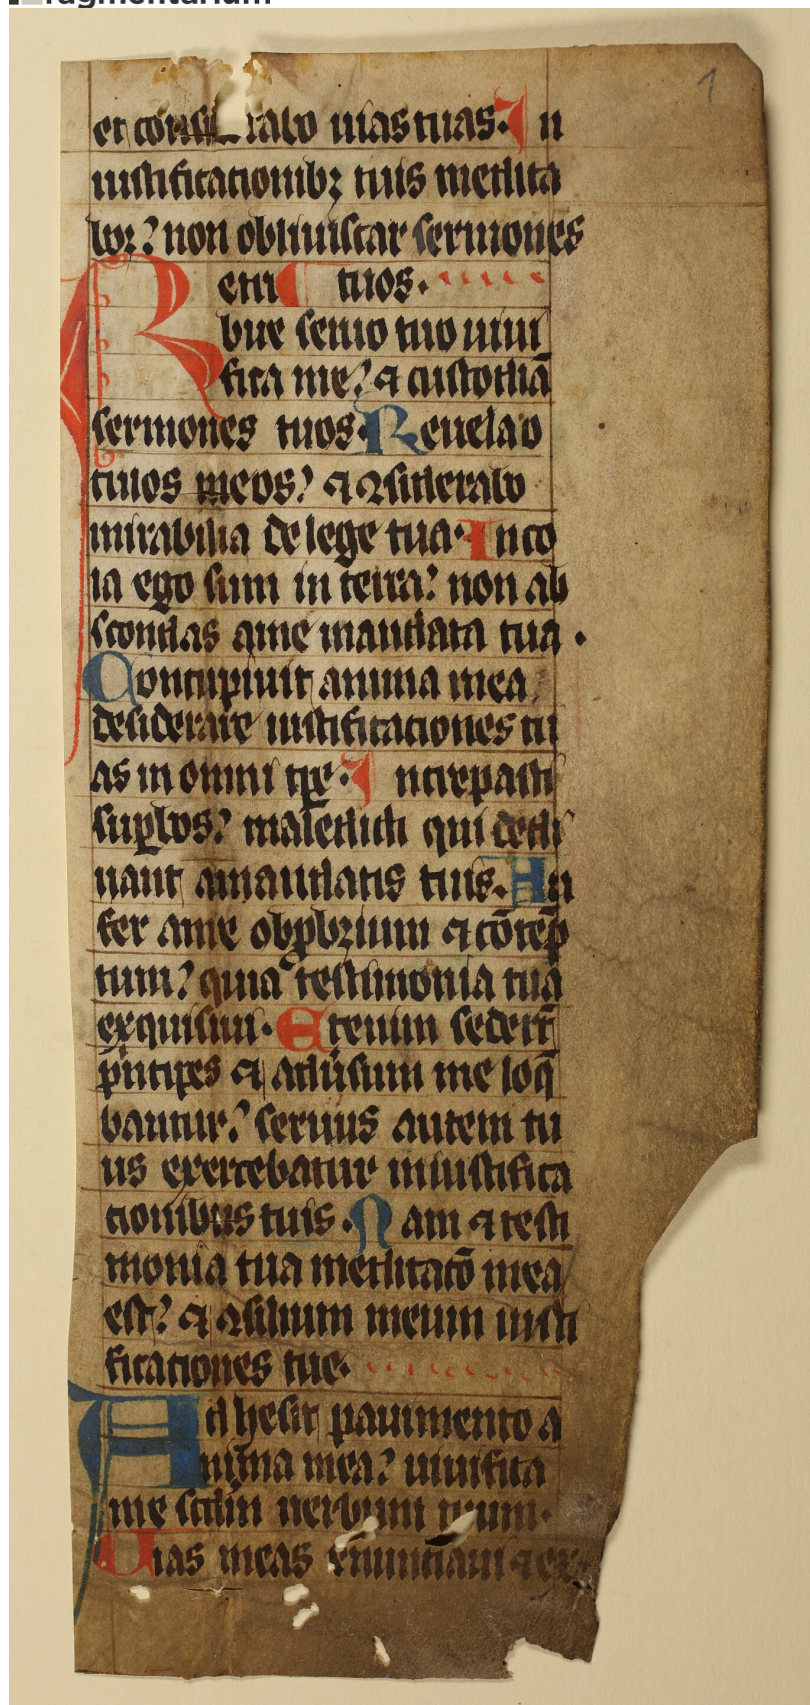 fragmentarium
1
et considerabo uias tuas. In
iustificationibꝫ tuis medita
bor? non obliuiscar sermones
Retri tuos.
bue seruo tuo uiui
fica me? ⁊ custodiā
sermones tuos. Reuela o
culos meos? ⁊ ꝯsiderabo
mirabilia de lege tua. Inco
la ego sum in terra? non ab
scondas ame mandata tua.
Concupiuit anima mea
desiderare iustificationes tu
as in omni tꝑe. Increpasti
suꝑbos? maledicti qui decli
nant amandatis tuis. Au
fer ame obꝓbrium ⁊ cōtēp
tum? quia testimonia tua
exquisiui. Etenim sederūt
pͥncipes ⁊ aduͥsum me loq̄
bantur? seruus autem tu
us exercebatur iniustifica
tionibus tuis. Nam ⁊ testi
monia tua meditatō mea
est? ⁊ ꝯsilium meum iusti
ficationes tue.
Adhesit pauimento a
nima mea? uiuifica
me scdm uerbum tuum.
Uias meas enuntiaui ⁊ ex